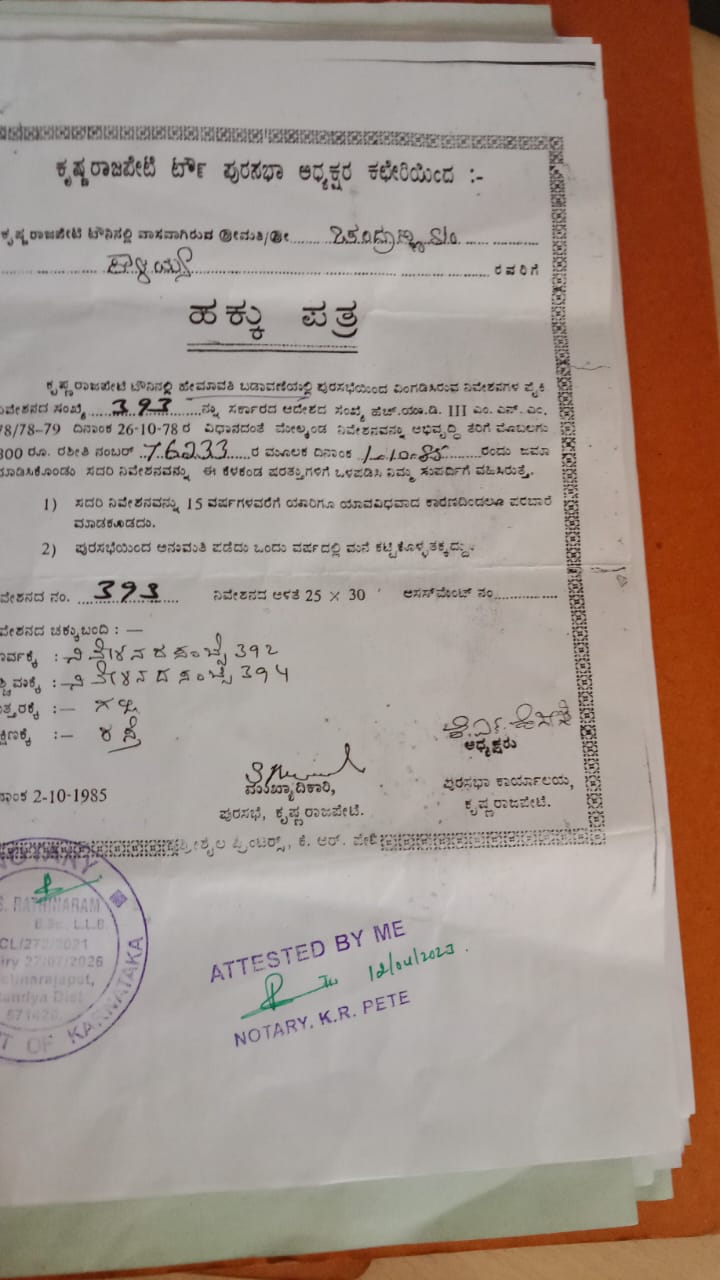 ಕೃಷ್ಣರಾಜಪೇಟೆ ಟೌನ್ ಪುರಸಭಾ ಅಧ್ಯಕ್ಷರ ಕಛೇರಿಯಿಂದ :-
ಕೃಷ್ಣರಾಜಪೇಟೆ ಟೌನಿನಲ್ಲಿ ವಾಸವಾಗಿರುವ ಶ್ರೀಮತಿ/ಶ್ರೀ
ರವರಿಗೆ
ಹಕ್ಕು ಪತ್ರ
ಕೃಷ್ಣರಾಜಪೇಟೆ ಟೌನಿನಲ್ಲಿ ಹೇಮಾವತಿ ಬಡಾವಣೆಯಲ್ಲಿ ಪುರಸಭೆಯಿಂದ ವಿಂಗಡಿಸಿರುವ ನಿವೇಶನಗಳ ಪೈಕಿ
ನಿವೇಶನದ ಸಂಖ್ಯೆ 393 ನ್ನು ಸರ್ಕಾರದ ಆದೇಶದ ಸಂಖ್ಯೆ ಹೆಚ್.ಯೂ.ಡಿ. III ಎಂ. ಎನ್. ಎಂ.
78/78-79 ದಿನಾಂಕ 26-10-78 ರ ವಿಧಾನದಂತೆ ಮೇಲ್ಕಂಡ ನಿವೇಶನವನ್ನು ಅಭಿವೃದ್ಧಿ ತೆರಿಗೆ ಮೊಬಲಗು
300 ರೂ. ರಶೀತಿ ನಂಬರ್ 76233 ರ ಮೂಲಕ ದಿನಾಂಕ 1-10-85 ರಂದು ಜಮಾ
ಮಾಡಿಸಿಕೊಂಡು ಸದರಿ ನಿವೇಶನವನ್ನು ಈ ಕೆಳಕಂಡ ಷರತ್ತುಗಳಿಗೆ ಒಳಪಡಿಸಿ ನಿಮ್ಮ ಸುಪರ್ದಿಗೆ ವಹಿಸಿರುತ್ತೆ.
1) ಸದರಿ ನಿವೇಶನವನ್ನು 15 ವರ್ಷಗಳವರೆಗೆ ಯಾರಿಗೂ ಯಾವವಿಧವಾದ ಕಾರಣದಿಂದಲೂ ಪರಬಾರೆ
ಮಾಡಕೂಡದು.
2) ಪುರಸಭೆಯಿಂದ ಅನುಮತಿ ಪಡೆದು ಒಂದು ವರ್ಷದಲ್ಲಿ ಮನೆ ಕಟ್ಟಿಕೊಳ್ಳತಕ್ಕದ್ದು.
ನಿವೇಶನದ ನಂ. 393 ನಿವೇಶನದ ಅಳತೆ 25 × 30 ' ಅಸಸ್‌ಮೆಂಟ್ ನಂ
ನಿವೇಶನದ ಚಕ್ಕುಬಂದಿ : —
ಪೂರ್ವಕ್ಕೆ : ನಿವೇಶನದ ಸಂಖ್ಯೆ 392
ಪಶ್ಚಿಮಕ್ಕೆ : ನಿವೇಶನದ ಸಂಖ್ಯೆ 394
ಉತ್ತರಕ್ಕೆ :— ಗಲ್ಲಿ
ದಕ್ಷಿಣಕ್ಕೆ :— ರಸ್ತೆ
ಅಧ್ಯಕ್ಷರು
ದಿನಾಂಕ 2-10-1985
ಮುಖ್ಯಾಧಿಕಾರಿ,
ಪುರಸಭಾ ಕಾರ್ಯಾಲಯ,
ಪುರಸಭೆ, ಕೃಷ್ಣರಾಜಪೇಟೆ.
ಕೃಷ್ಣರಾಜಪೇಟೆ.
ಶ್ರೀಶೈಲ ಪ್ರಿಂಟರ್ಸ್, ಕೆ. ಆರ್. ಪೇಟೆ
NOTARY
B.Sc., L.L.B.
27/07/2026
Mandya Dist
KARNATAKA
ATTESTED BY ME
12/04/2023.
NOTARY, K.R. PETE